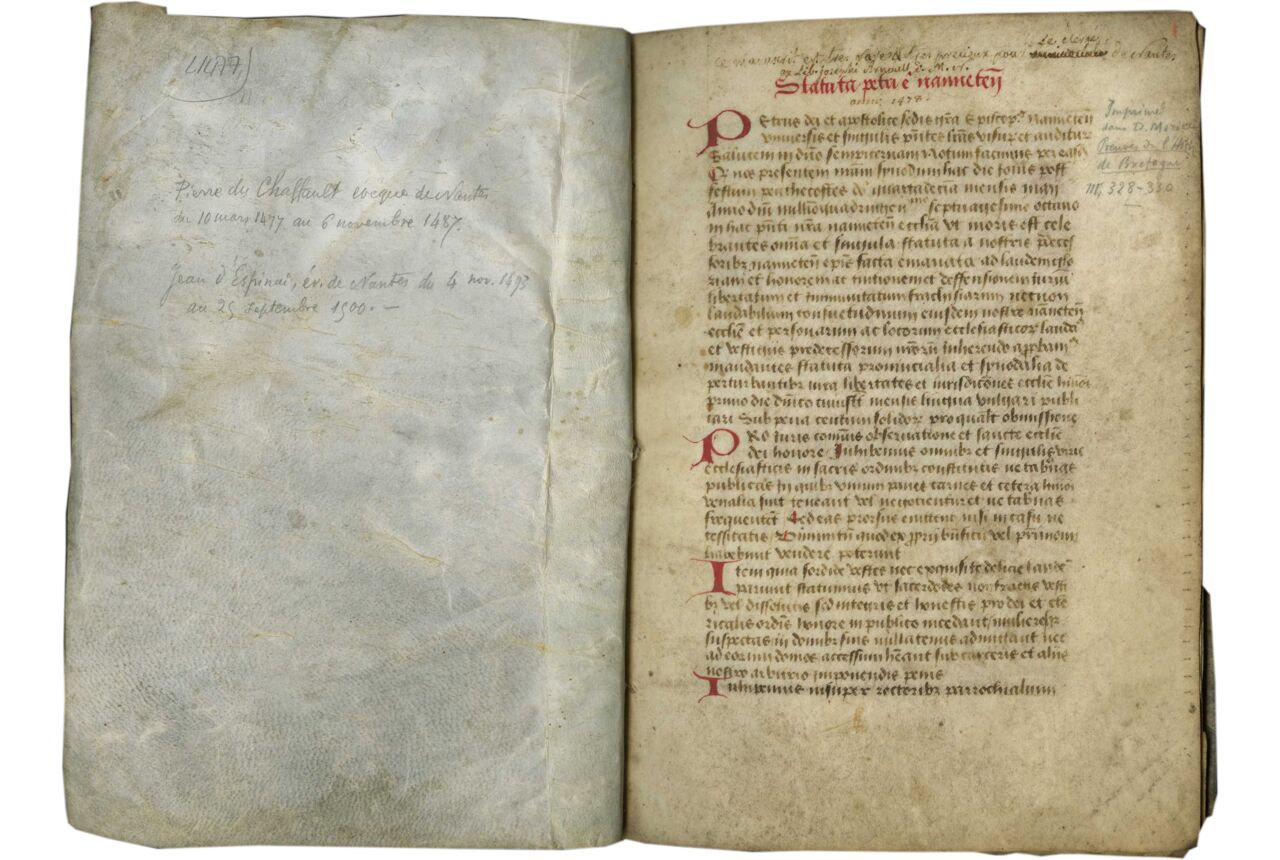 Pierre du Chaffault evêque de Nantes
du 10 mars 1477 au 6 novembre 1487.
Jean d'Espinai, év. de Nantes du 4 nov. 1493
au 25 septembre 1500. —
ce manuscrit est très rare et très précieux pour le clergé de Nantes
Statuta petri ẽ nanneteñ
anni 1478.
Imprimé
dans D. Morice
Preuves de l'Hist.
de Bretagne
III, 328-330
Petrus dei et apostolice sedis gr̃a Episcopꝰ Nanneteñ
vniuersis et singulis pñtes lr̃as visur̃ et auditur̃
Salutem in dño sempiternam Notum facimus per
Qꝛ nos presentem nr̃am synodum hac die Jouis post
festum penthecostes de quartadecia mensis maii
Anno dñi millioquadringen septuagesimo octauo
in hac pñti nr̃a nanneteñ ecclia vt moris est cele
brantes om̃ia et singula statuta a nostris p̃deces
soribꝫ nanneteñ ep̃is facta emanata ad laudem glo
riam et honorem ac tuitionem et deffensionem iuriũ
libertatum et immunitatum ecclesiarum necnon
laudabilium consuetudinum eiusdem nostre nanneteñ
ecclie et personarum ac locorum ecclesiasticoꝝ lauda
et vestigiis predecessorum nr̃orũ inherendo approbamꝰ
mandantes statuta prouincialia et synodalia de
perturbantibꝫ iura libertates et iurisdic̃ones ecclie
primo die dñico cuiuslꝫ mensis lingua vulgari publi
cari Sub pena centum solidoꝝ pro qualꝫ obmissione
PRo iuris com̃unis obseruatione et sancte ecclie
dei honore Inhibemus omnibꝫ et singulis viris
ecclesiasticis in sacris ordinibꝫ constitutis ne tab̃nas
publicas in quibꝫ vinum panes carnes et cetera
venalia sint teneant vel negocientur et ne tab̃nas
frequentent Sed eas prorsus euittent nisi in casu ne
cessitatis vinum tñ quod ex
habebunt vendere poterunt
Item quia sordide vestes nec exquisite delicie laudẽ
pariunt statuimus vt sacerdotes non fractis vesti
bꝫ vel dissolutis sed integris et honestis pro dei et cle
ricalis ordis honore in publico incedant mulieresqꝫ
suspectas in domibꝫ suis nullatenus admittant nec
ad eorum domos accessum hẽant sub carceris et aliis
nostro arbitrio imponendis penis
Inhibemus insuper rectoribꝫ parrochialium